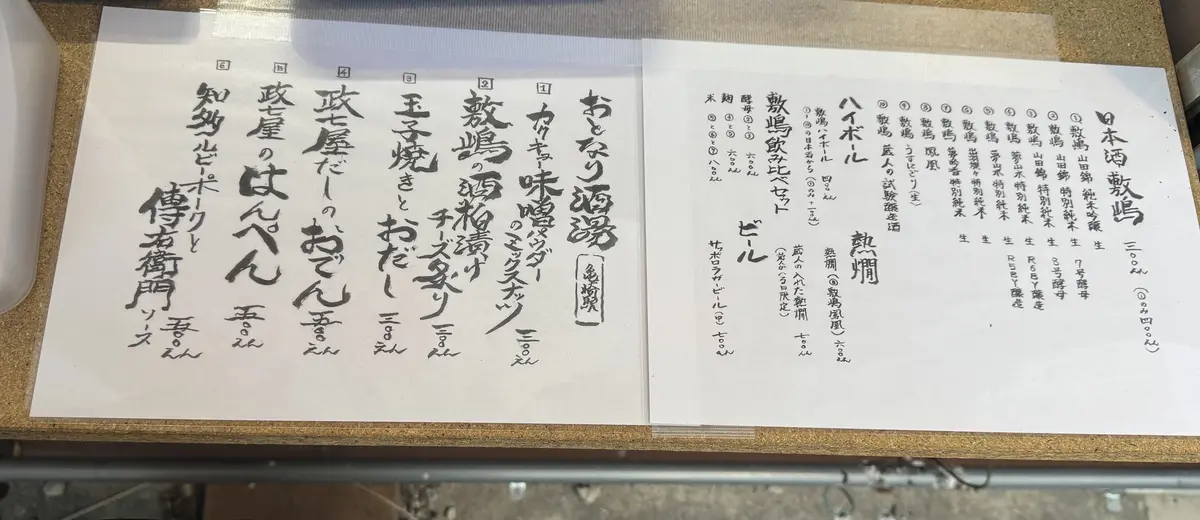 日本酒 敷嶋 三〇〇えん (①のみ四〇〇えん)
① 敷嶋 山田錦 純米吟醸 生 7号酵母
② 敷嶋 山田錦 特別純米 生 8号酵母
③ 敷嶋 山田錦 特別純米 生 R6BY醸造
④ 敷嶋 夢山水 特別純米 生 R5BY醸造
⑤ 敷嶋 夢山水 特別純米 生
⑥ 敷嶋 出羽燦々 特別純米 生
⑦ 敷嶋 特別純米 生
⑧ 敷嶋 鳳凰
⑨ 敷嶋 うすにごり(生)
⑩ 敷嶋 蔵人の試験醸造酒
ハイボール
敷嶋ハイボール 四〇〇えん
熱燗
熱燗(⑧敷嶋鳳凰) 六〇〇えん
蔵人の入れた熱燗 七〇〇えん
敷嶋飲み比べセット
酵母 ②と③ 六〇〇えん
麹 ④と⑤ 六〇〇えん
米 ⑤と⑥と⑦ 八〇〇えん
ビール
サッポロラガービール(中) 七〇〇えん
おとなり酒湯 亀崎駅
1 カクキュー味噌パウダーのミックスナッツ 三〇〇えん
2 敷嶋の酒粕漬けチーズ炙り 三〇〇えん
3 玉子焼きとおだし 三〇〇えん
4 政七屋だしのおでん 五〇〇えん
5 政七屋のはんぺん 五〇〇えん
6 知多ハッピーポークと傳右衛門ソース 五〇〇えん